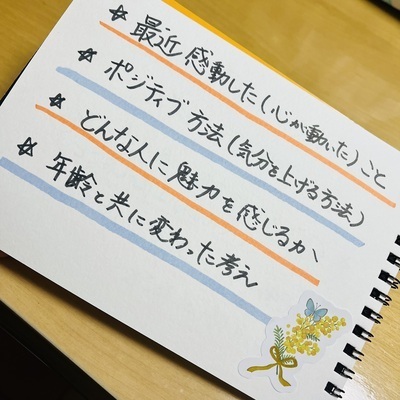 ☆ 最近 感動した(心が動いた)こと
☆ ポジティブ方法(気分を上げる方法)
☆ どんな人に魅力を感じるか、
☆ 年齢と共に変わった考え